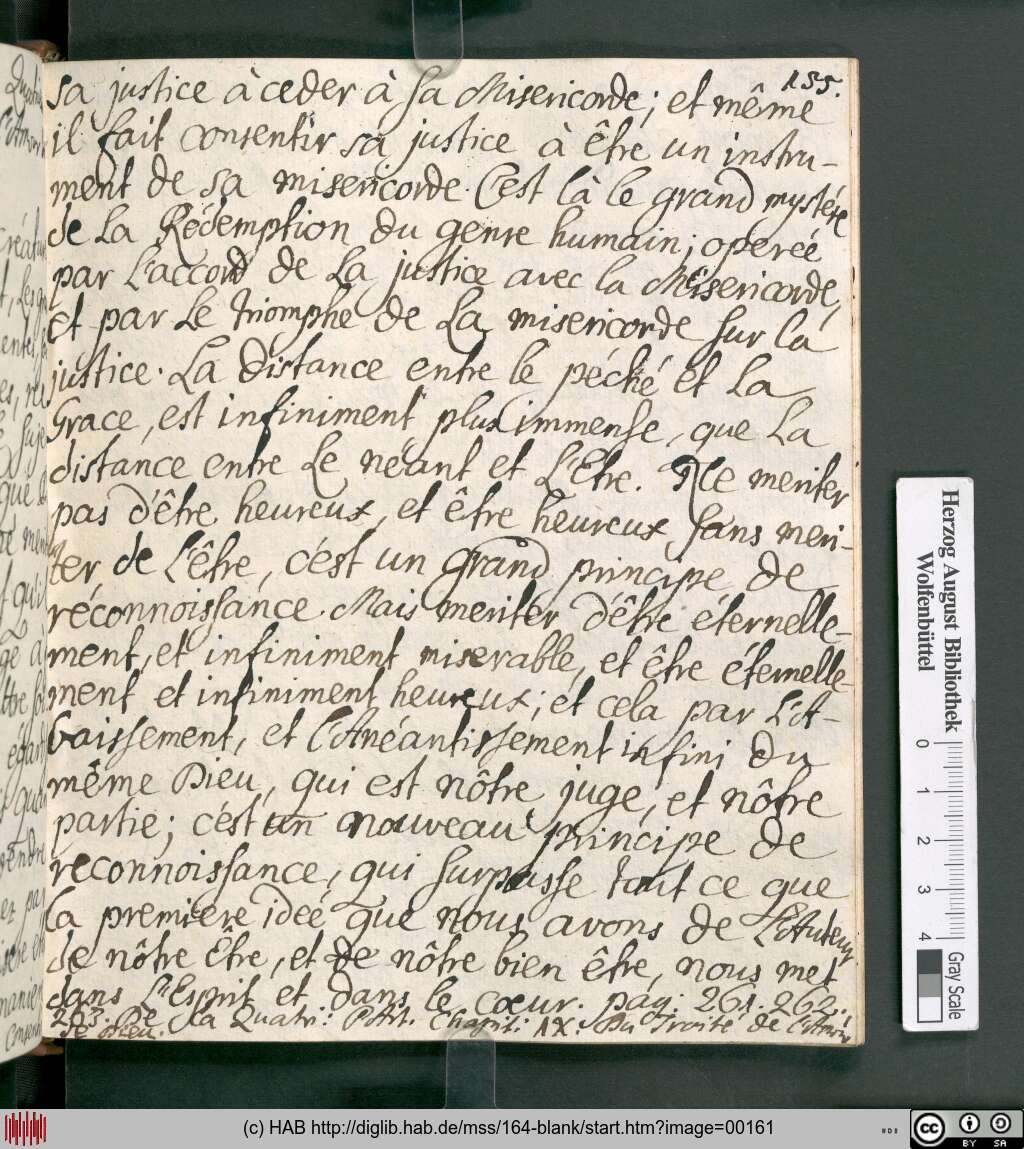 155.
sa justice à ceder à sa Misericorde; et même
il fait consentir sa justice à être un instru-
ment de sa misericorde. C'est là le grand mystére
de La Rédemption du genre humain; operée
par L'accord de La justice avec la Misericorde,
et par Le triomphe de La misericorde sur la
justice. La distance entre le péché et La
Grace, est infiniment plus immense, que La
distance entre Le neant et L'Etre. Ne meriter
pas d'être heureux, et être heureux, sans meri-
ter de L'être, c'est un grand principe de
réconnoissance. Mais meriter d'être éternelle-
ment, et infiniment miserable, et être éternelle-
ment et infiniment heureux; et cela par L'A-
baissement, et l'Anéantissement infini du
même Dieu, qui est nôtre juge, et nôtre
partie; c'est un nouveau principe de
reconnoissance, qui surpasse tout ce que
la premiere ideé que nous avons de L'Auteur
de nôtre Être, et de nôtre bien être, nous met
dans L'Esprit et dans le cœur. pag. 261. 262.
263. De La Quatr: Part. Chapit: IX. Du Traité de l'Amour
de Dieu.
Herzog August Bibliothek
Wolfenbüttel
0 1 2 3 4
Gray Scale
(c) HAB http://diglib.hab.de/mss/164-blank/start.htm?image=00161
cc BY SA